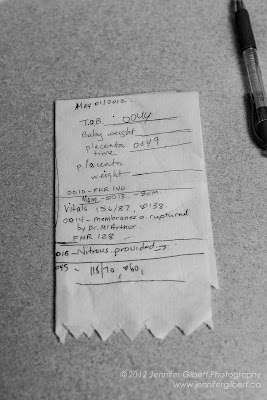 May 01/2012
T.O.B. : 0044
Baby weight
placenta
time 0049
placenta
weight
0010 - FHR 140
0013 -
Vitals 136/87, 138
0014 - membranes ruptured
by Dr. McArthur
FHR 128
- Nitrous provided
118/70, 60,
© 2012 Jennifer Gilbert Photography
www.jennifergilbert.ca